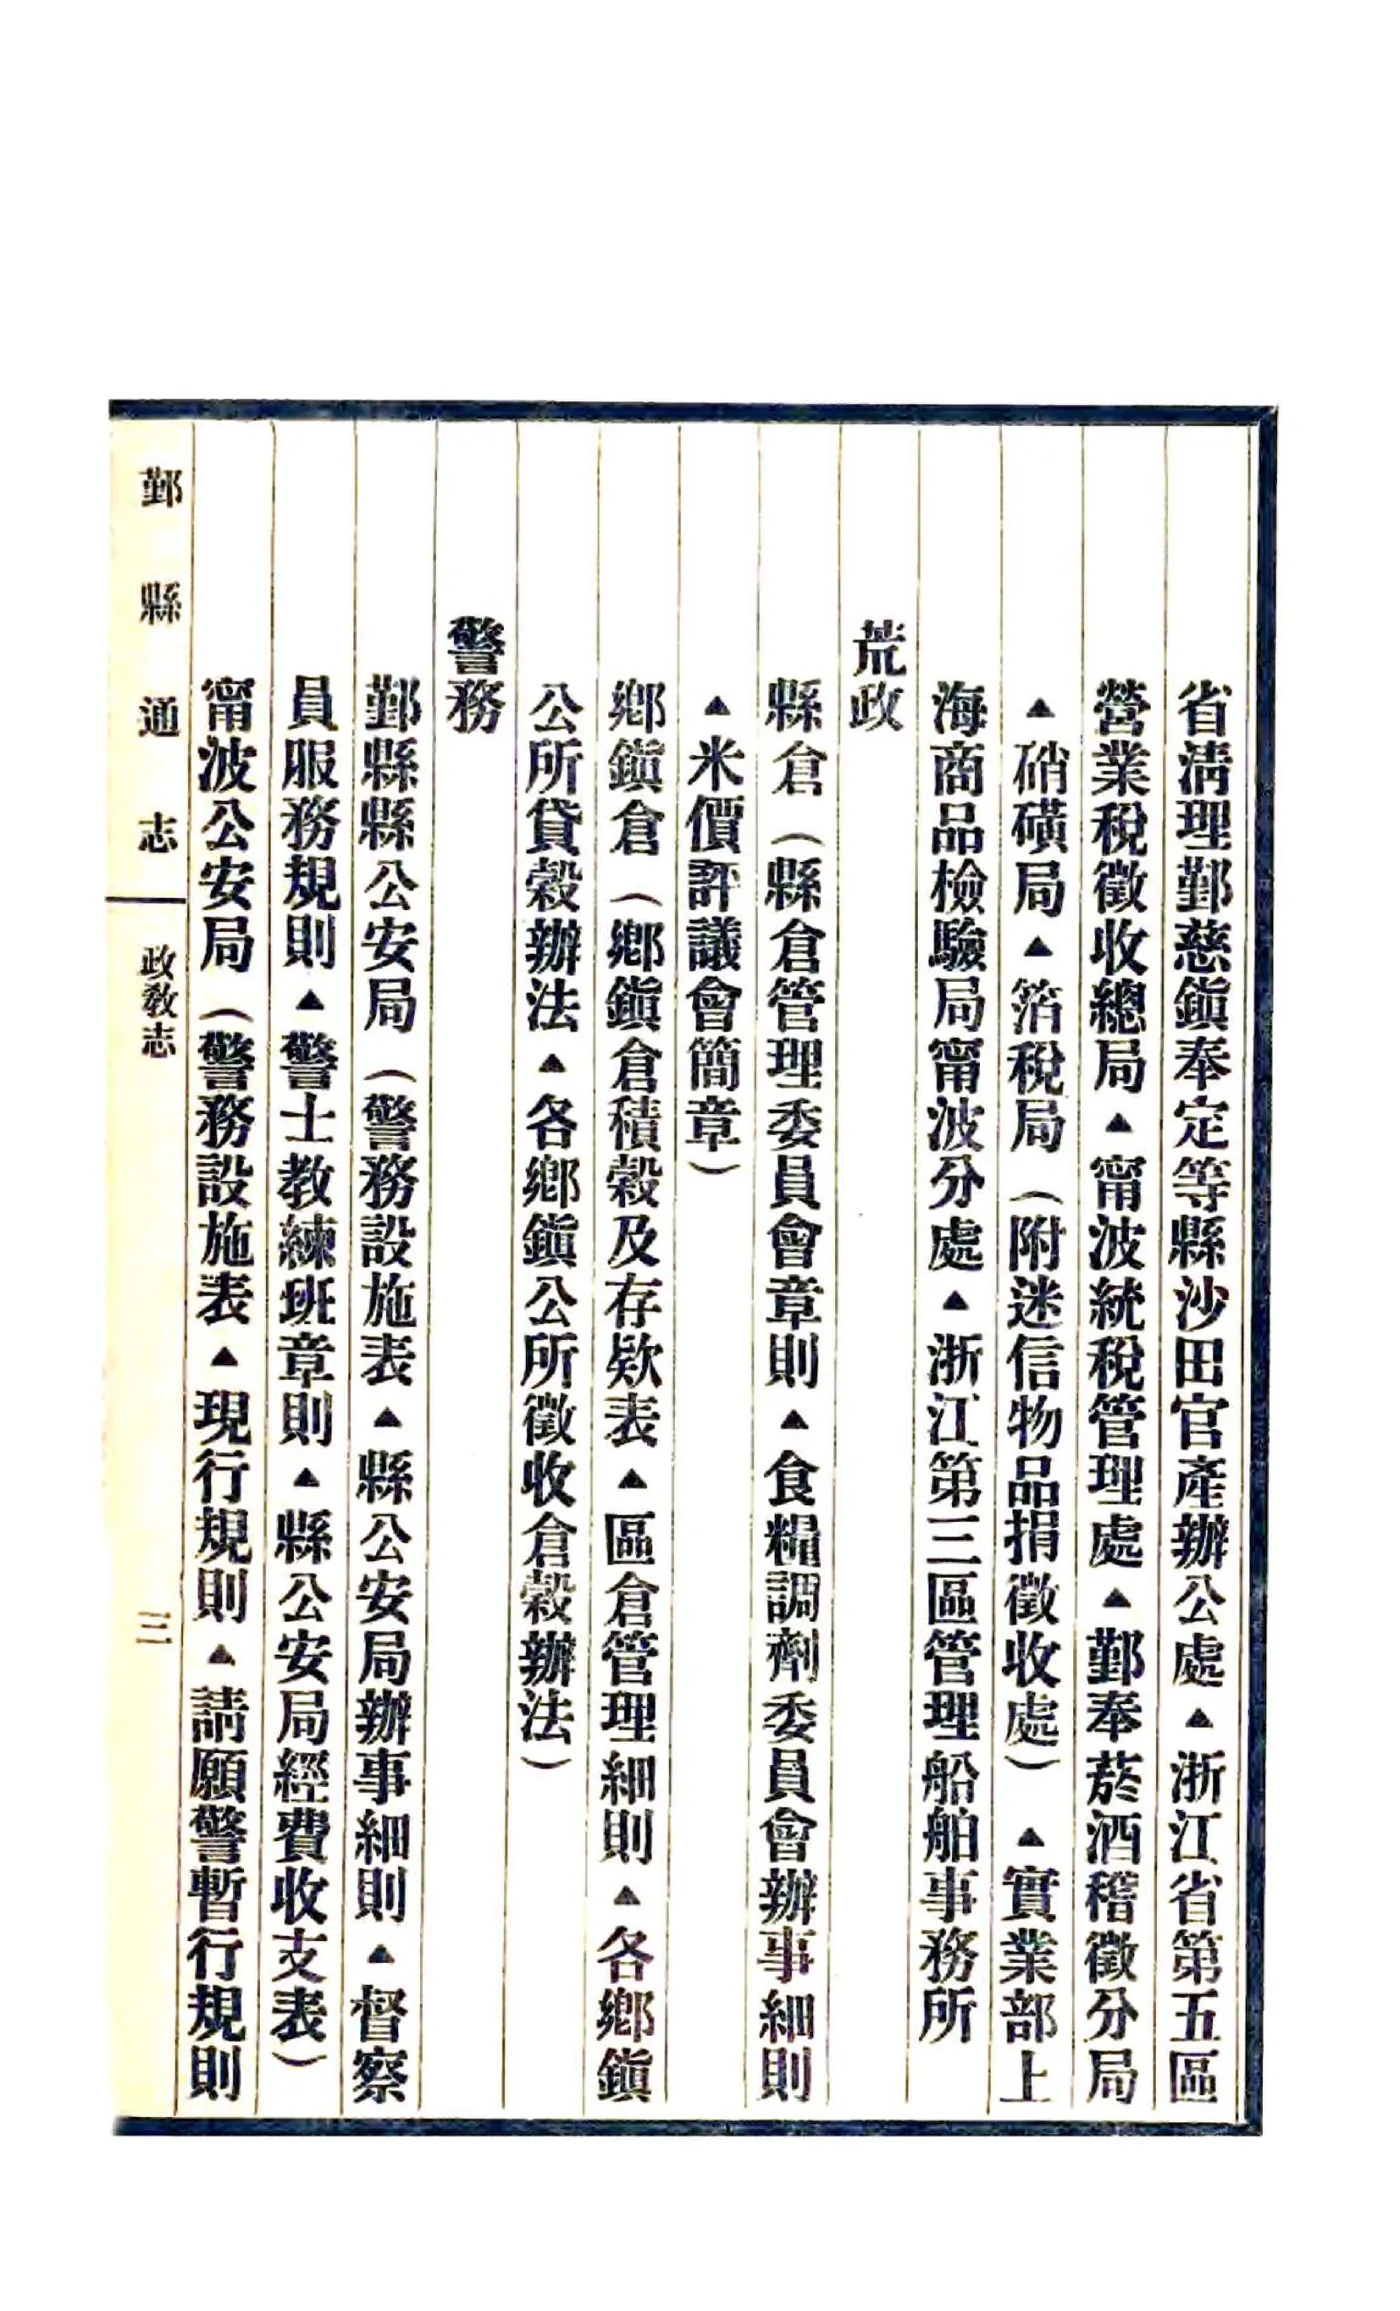 省淸理鄞慈鎭奉定等縣沙田官產辦公處▲浙江省第五區
營業稅徵收總局▲甯波統稅管理處▲鄞奉菸酒稽徵分局
▲硝磺局▲箔稅局(附迷信物品捐徵收處)▲實業部上
海商品檢驗局甯波分處▲浙江第三區管理船舶事務所
荒政
縣倉(縣倉管理委員會章則▲食糧調劑委員會辦事細則
▲米價評議會簡章)
鄉鎭倉(鄉鎭倉積穀及存欵表▲區倉管理細則▲各鄉鎭
公所貸穀辦法▲各鄉鎭公所徵收倉穀辦法)
警務
鄞縣縣公安局(警務設施表▲縣公安局辦事細則▲督察
員服務規則▲警士教練班章則▲縣公安局經費收支表)
甯波公安局(警務設施表▲現行規則▲請願警暫行規則
鄞縣通志 政教志 三